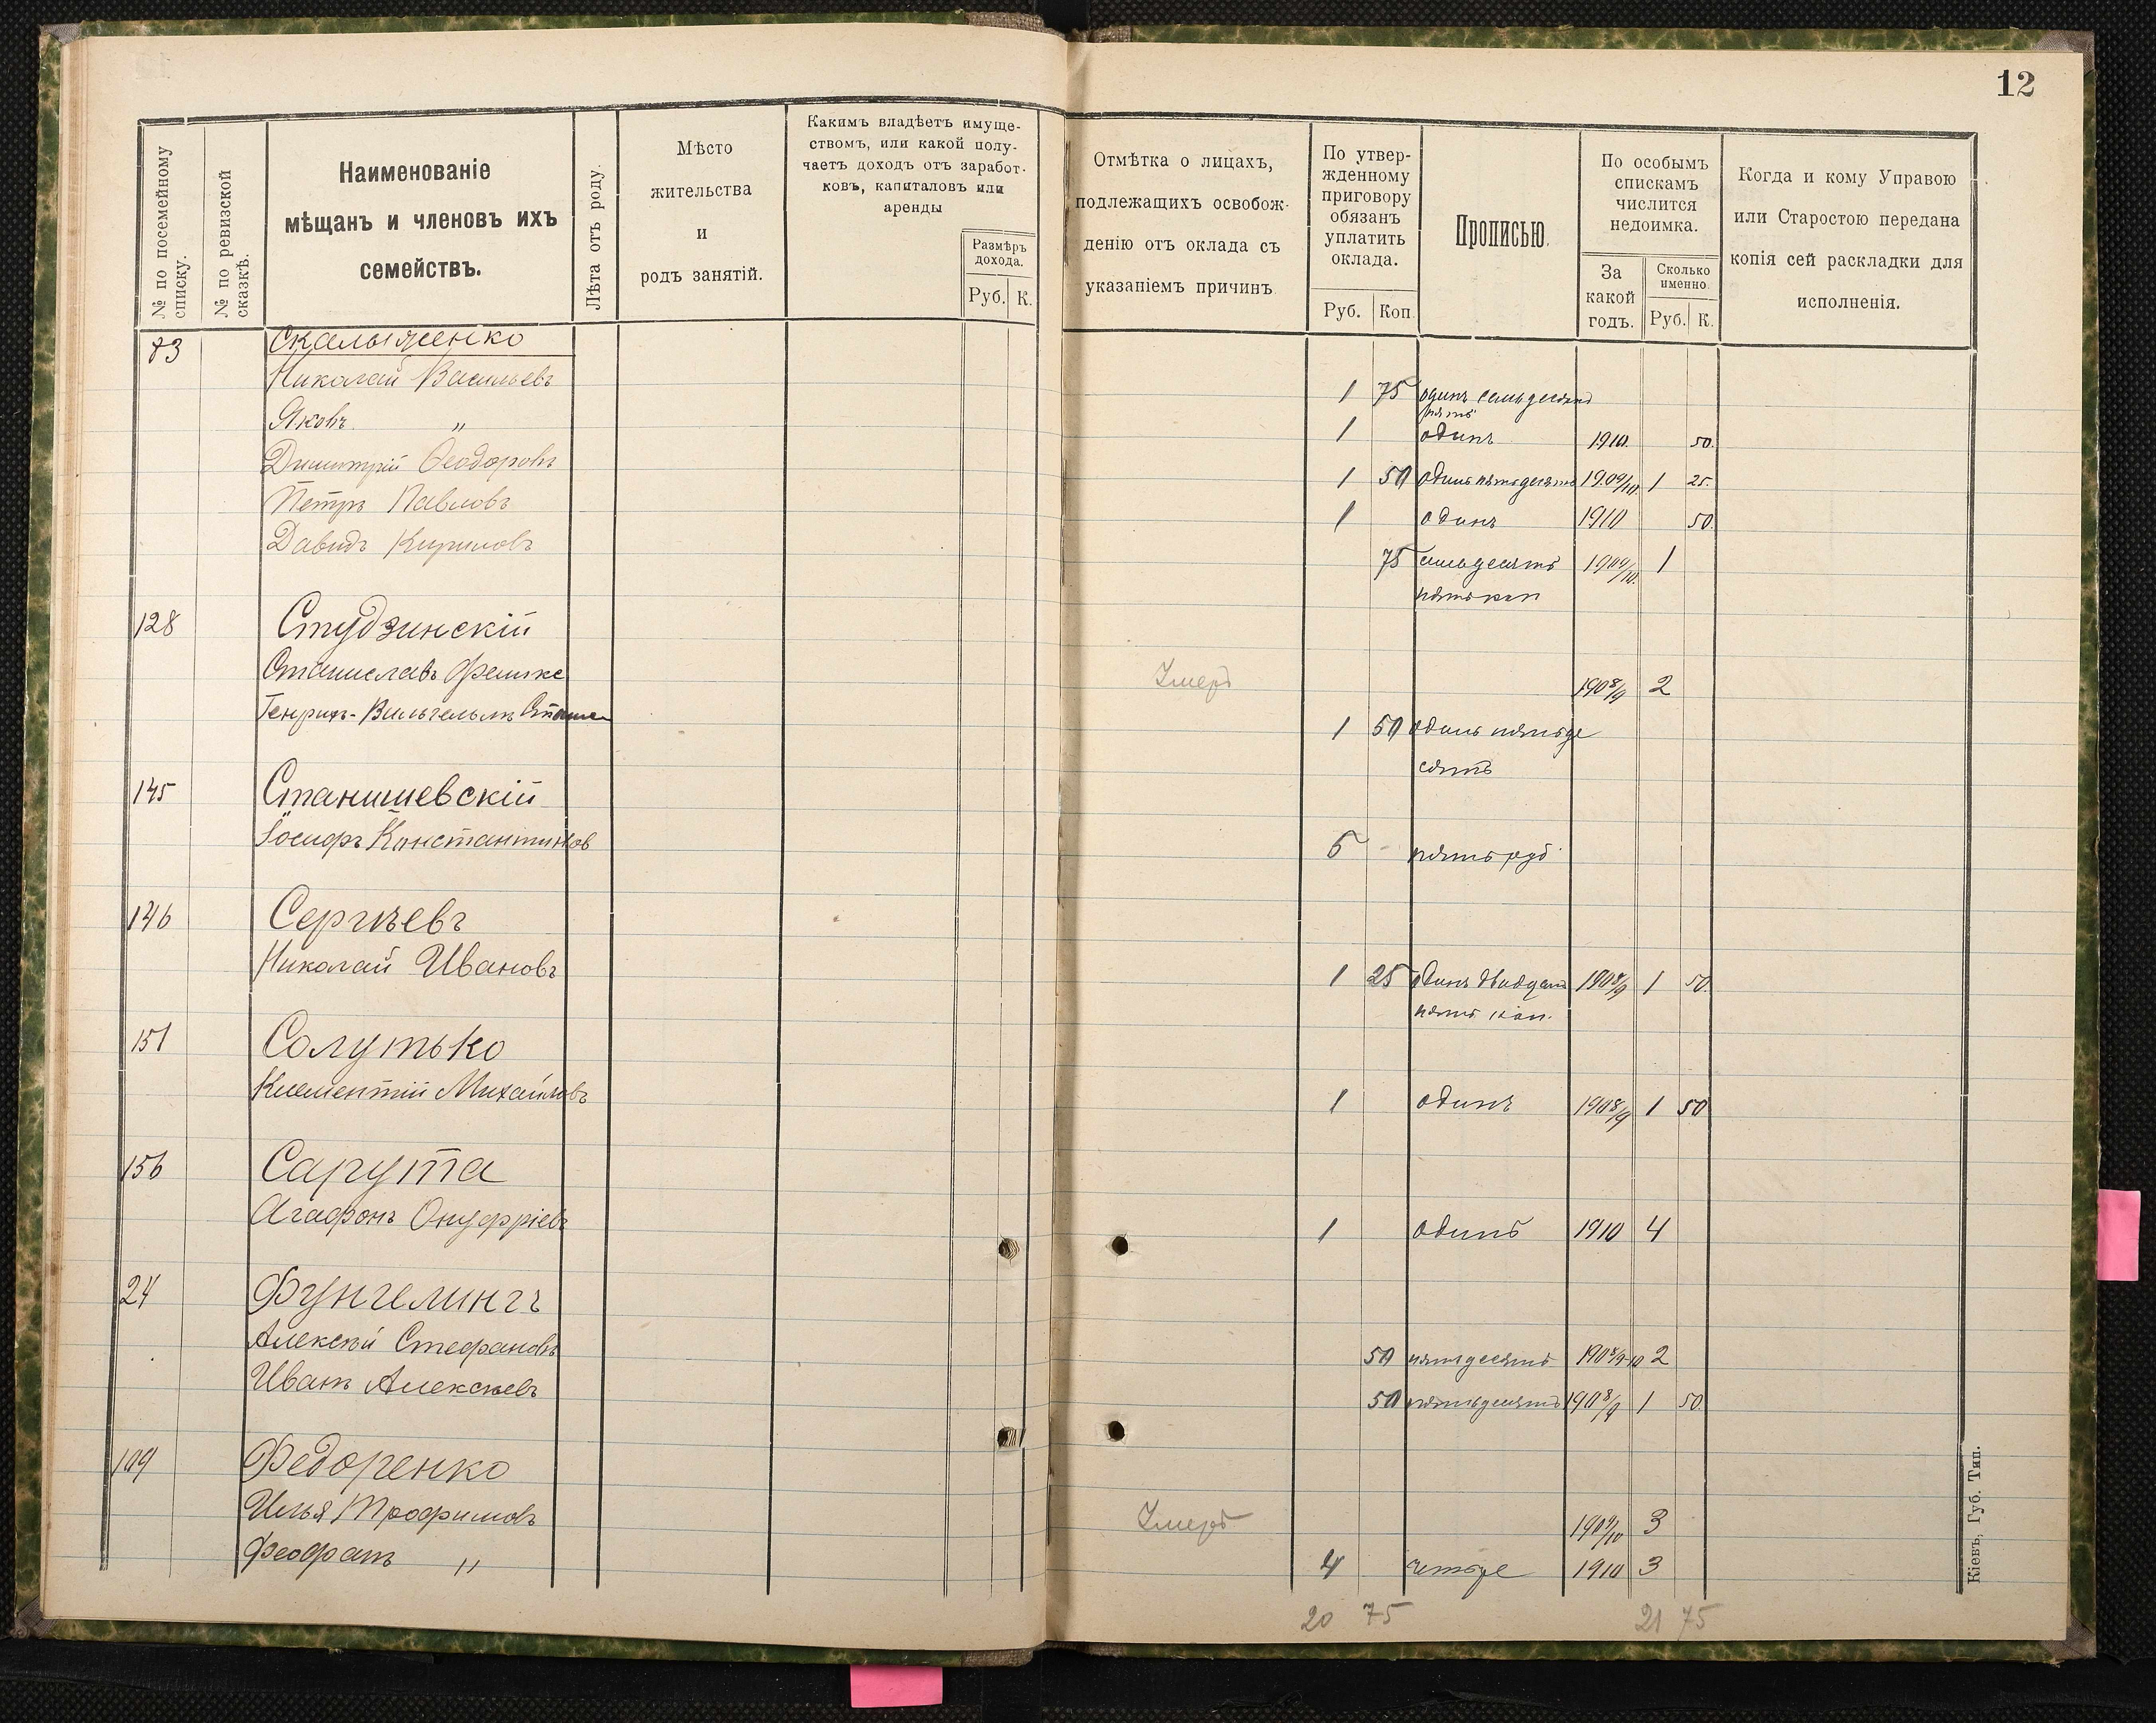 12
№ по посемейному списку.
№ по ревизской сказкѣ.
Наименованіе
мѣщанъ и членовъ ихъ
семействъ.
Лѣта отъ роду.
Мѣсто
жительства
и
родъ занятій.
Какимъ владѣетъ имуще-
ствомъ, или какой полу-
чаетъ доходъ отъ заработ-
ковъ, капиталовъ или
аренды
Размѣръ
дохода.
Руб. К.
Отмѣтка о лицахъ,
подлежащихъ освобож-
денію отъ оклада съ
указаніемъ причинъ
По утвер-
жденному
приговору
обязанъ
уплатить
оклада.
Руб. Коп.
Прописью.
По особымъ
спискамъ
числится
недоимка.
За
какой
годъ.
Сколько
именно.
Руб. К.
Когда и кому Управою
или Старостою передана
копія сей раскладки для
исполненія.
Николай Васильевъ 1 75 одинъ семьдесятъ
пять
Яковъ " 1 одинъ 1910. 50.
Димитрій Ѳеодоровъ 1 50 одинъ пятьдесятъ 1909/10. 1 25.
Петръ Павловъ 1 одинъ 1910 50.
Давидъ Кириловъ 75 семьдесятъ 1909/10. 1
пять коп
128 Студзинскій
Станиславъ Умеръ 1908/9 2
Генрихъ-Вильгельмъ 1 50 одинъ пятьде
сятъ
145 Станишевскій
Іосифъ Константинов 5 - пять руб
146 Сергѣевъ
Николай Ивановъ 1 25 одинъ двадцать 1908/9 1 50.
пять коп.
151 Солутько
Климентій Михайловъ 1 одинъ 1908/9 1 50
156 Сарута
Агафонъ Онуфріевъ 1 одинъ 1910 4
24 Фунгелингъ
Алексѣй Стефановъ 50 пятьдесятъ 1908/9-10 2
Иванъ Алексѣевъ 50 пятьдесятъ 1908/9 1 50.
Федоренко
Илья Трофимовъ Умеръ 1909/10 3
Феофанъ " 4 четыре 1910 3
20 75 21 75
Кіевъ, Губ. Тип.